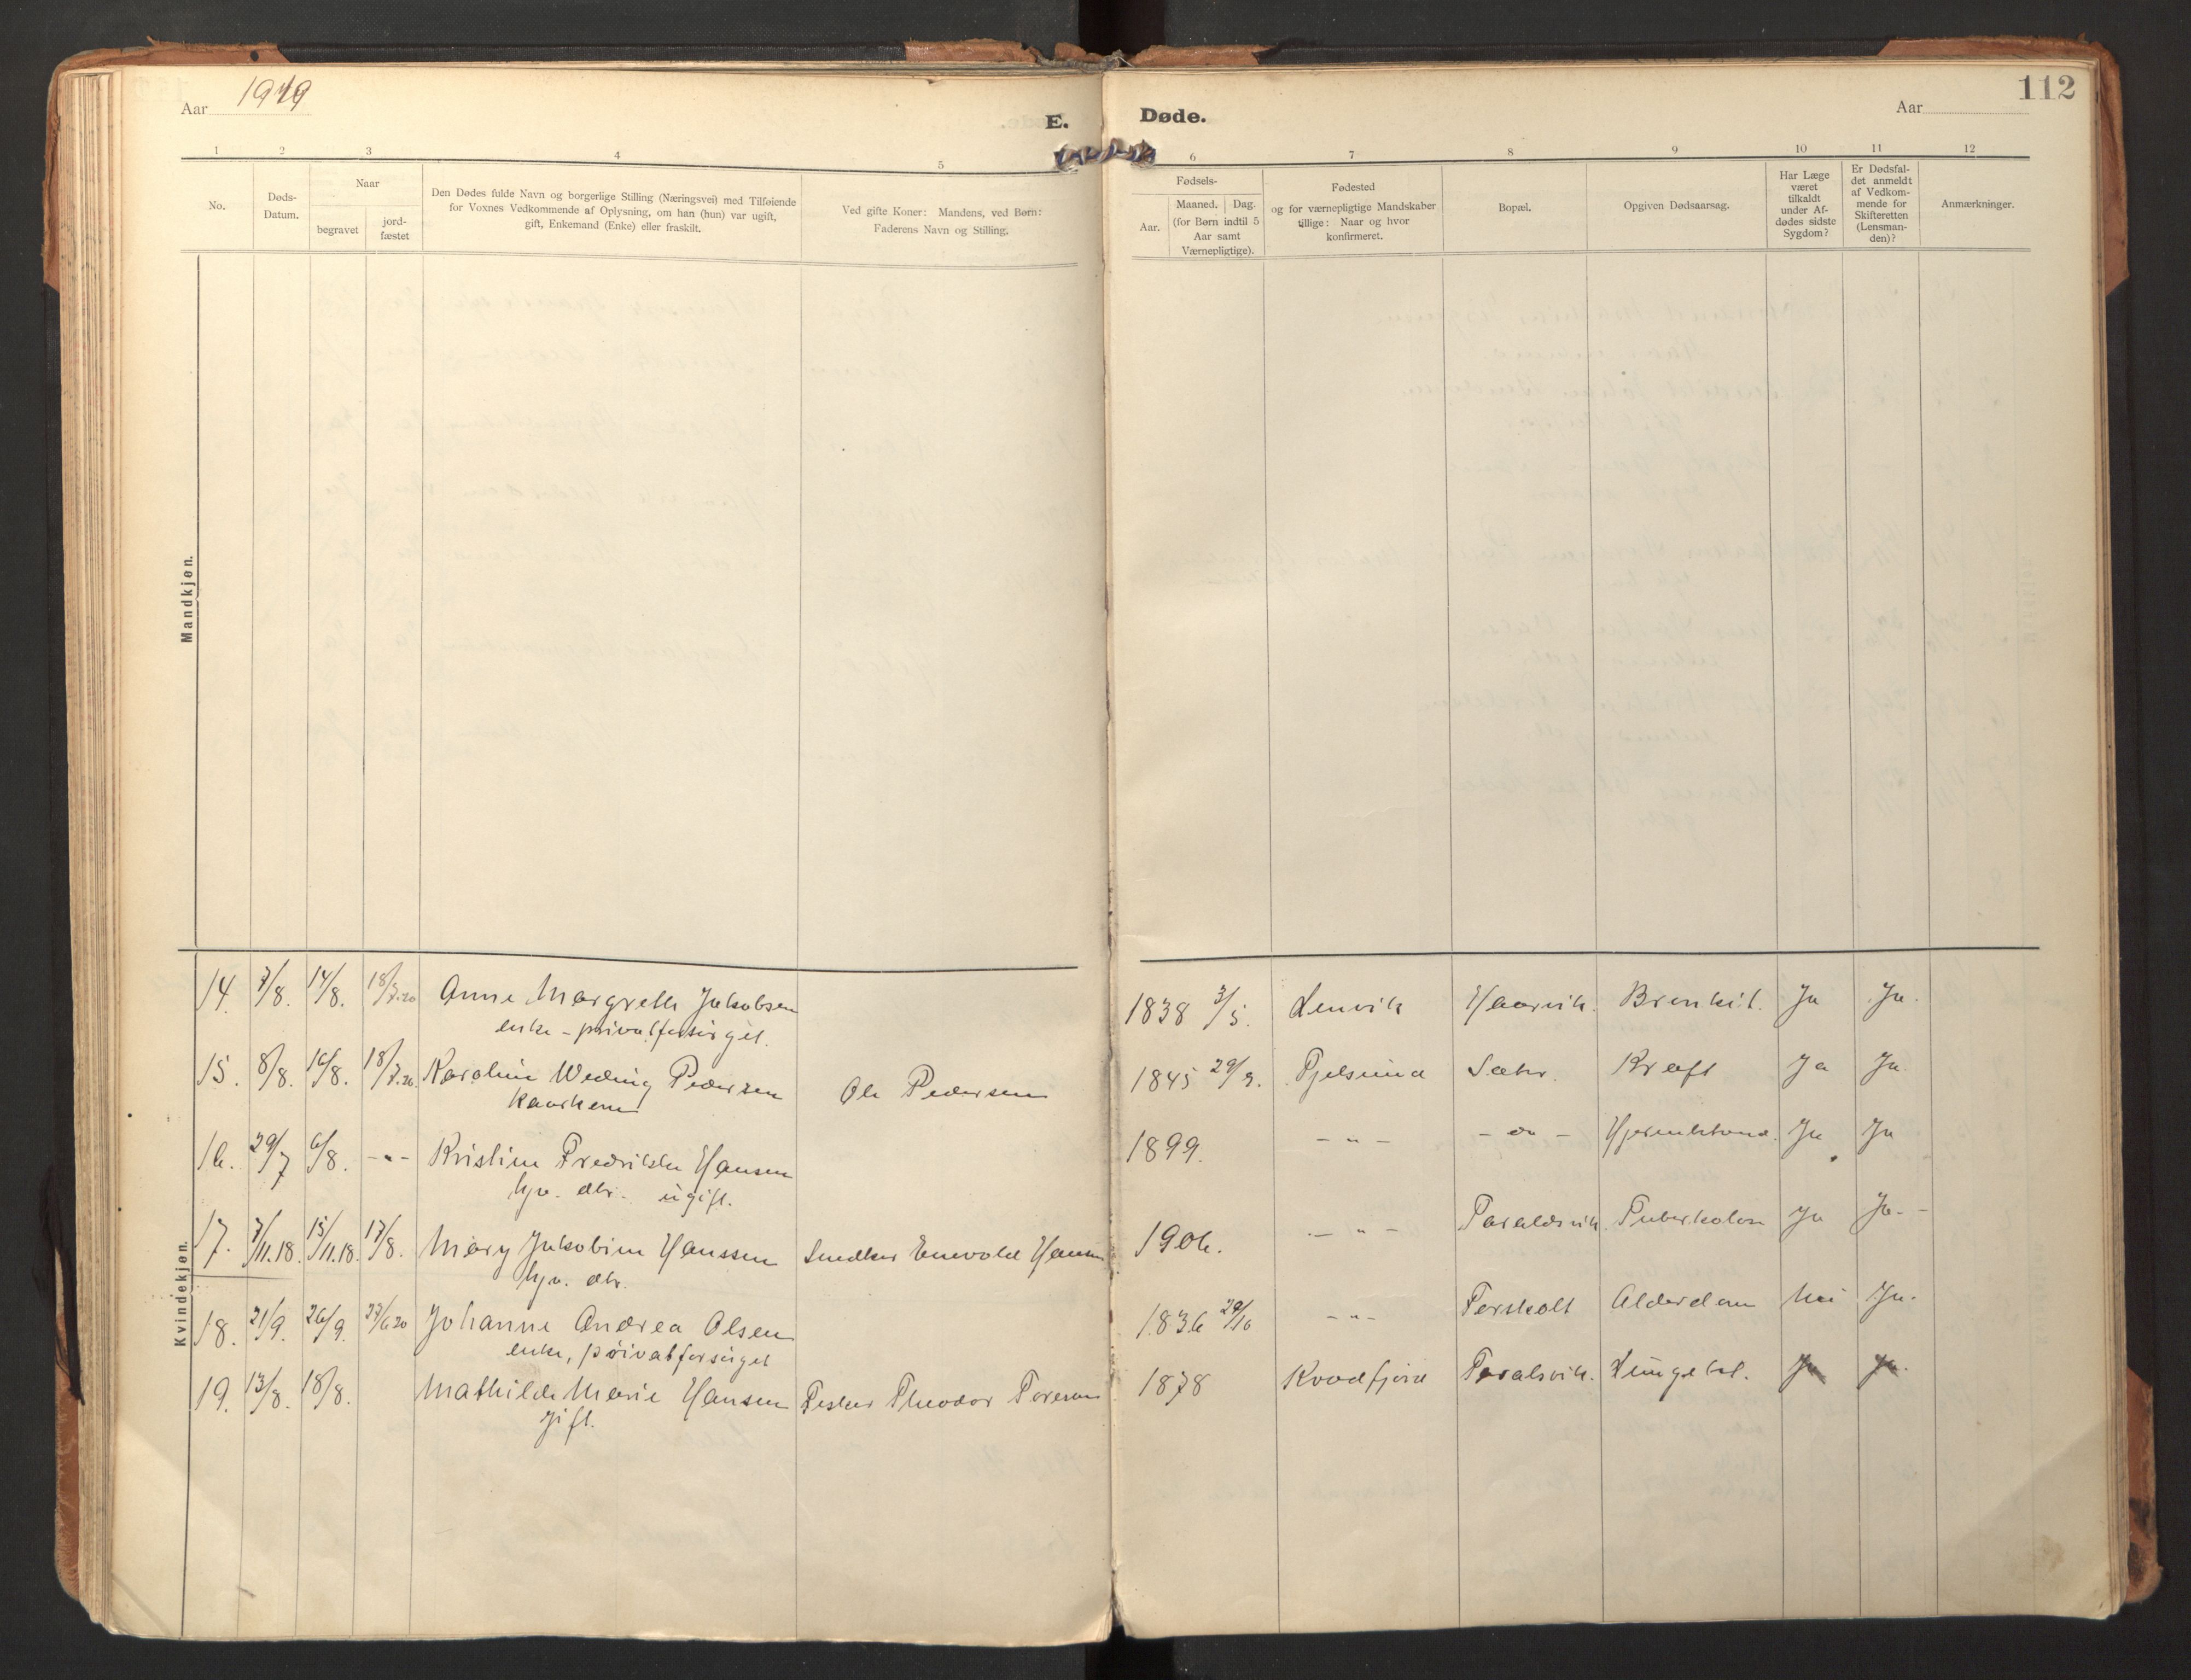 Aar 1919
E. Døde.
Aar
112
1 2 3 4 5 6 7 8 9 10 11 12
No.
Døds-
Datum.
Naar
begravet
jord-
fæstet
Den Dødes fulde Navn og borgerlige Stilling (Næringsvei) med Tilføiende
for Voxnes Vedkommende af Oplysning, om han (hun) var ugift,
gift, Enkemand (Enke) eller fraskilt.
Ved gifte Koner: Mandens, ved Børn:
Faderens Navn og Stilling.
Fødsels-
Aar.
Maaned. Dag.
(for Børn indtil 5
Aar samt
Værnepligtige).
Fødested
og for værnepligtige Mandskaber
tillige: Naar og hvor
konfirmeret.
Bopæl.
Opgiven Dødsaarsag.
Har Læge
været
tilkaldt
under Af-
dødes sidste
Sygdom?
Er Dødsfal-
det anmeldt
af Vedkom-
mende for
Skifteretten
(Lensman-
den)?
Anmærkninger.
Mandkjøn.
Kvindekjøn.
14. 7/8. 14/8. 18/7.20 Anne Margrethe Jakobsen 1838 3/5. Lenvik Haarvik. Bronkit. Ja Ja.
enke – privatforsörget.
15. 8/8. 16/8. 18/7.20 Karoline Weding Pedersen Ole Pedersen 1845 29/9. Tjelsund Sætr. Kræft Ja Ja
Kaarkone
16. 29/7 6/8. -"- Kristine Fredrikke Hansen 1899. -"- - do - Hjernebetænd. Ja Ja
hjv. dtr. ugift.
17. 7/11.18. 15/11.18. 17/8. Mary Jakobine Hanssen Snedker Enevold Hansen 1906. -"- Taraldsvik. Tuberkolose Ja Ja.-
hjv. dtr.
18. 21/9. 26/9. 27/6 20 Johanne Andrea Olsen 1836 29/10 -"- Forsholt Alderdom Nei Ja.
enke, privatforsörget
19. 13/8. 18/8. Mathilde Marie Hansen Fisker Theodor Toresen 1878 Kvædfjord Taralsvik. Lungebet. Ja Ja.
gift.